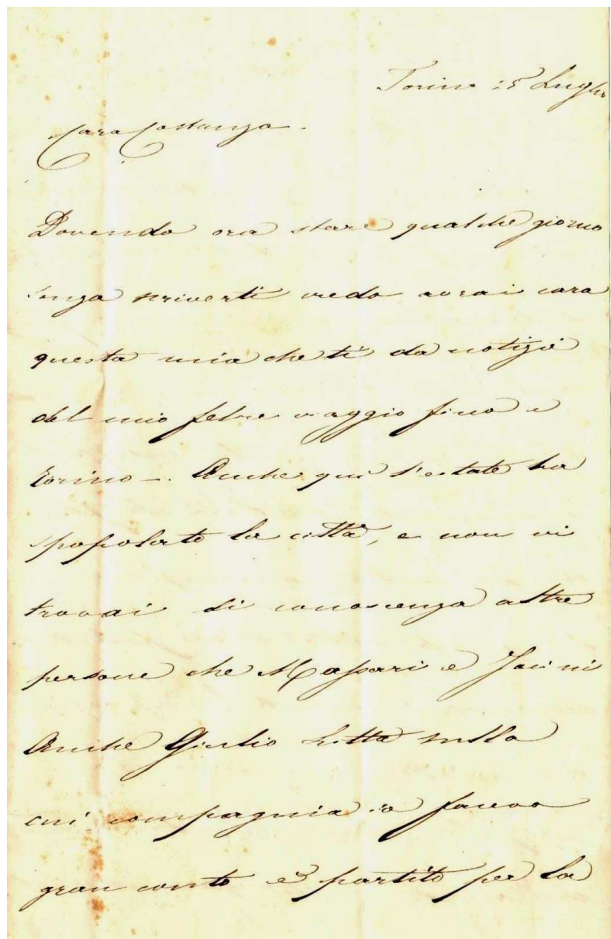 Torino 25 Luglio
Cara Costanza.
Dovendo ora stare qualche giorno
senza scriverti credo avrai cara
questa mia che ti da notizie
del mio felice viaggio fino a
Torino -. Anche qui l'estate ha
spopolato la città, e non vi
trovai di conoscenza altre
persone che Massari e Jacini
Anche Giulio Litta sulla
cui compagnia io faceva
gran conto è partito per la